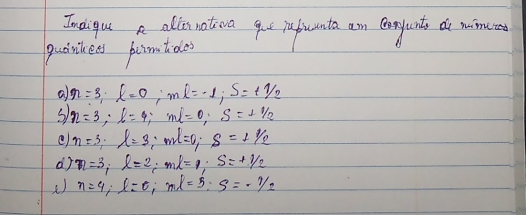 Indique a alternativa que representa um conjunto de números
quânticos permitidos
a) n=3; l=0; ml=-1; S=+1/2
b) n=3; l=4; ml=0; S=+1/2
c) n=3; l=3; ml=0; S=+1/2
d) n=3; l=2; ml=1; S=+1/2
e) n=4; l=0; ml=3; S=-1/2